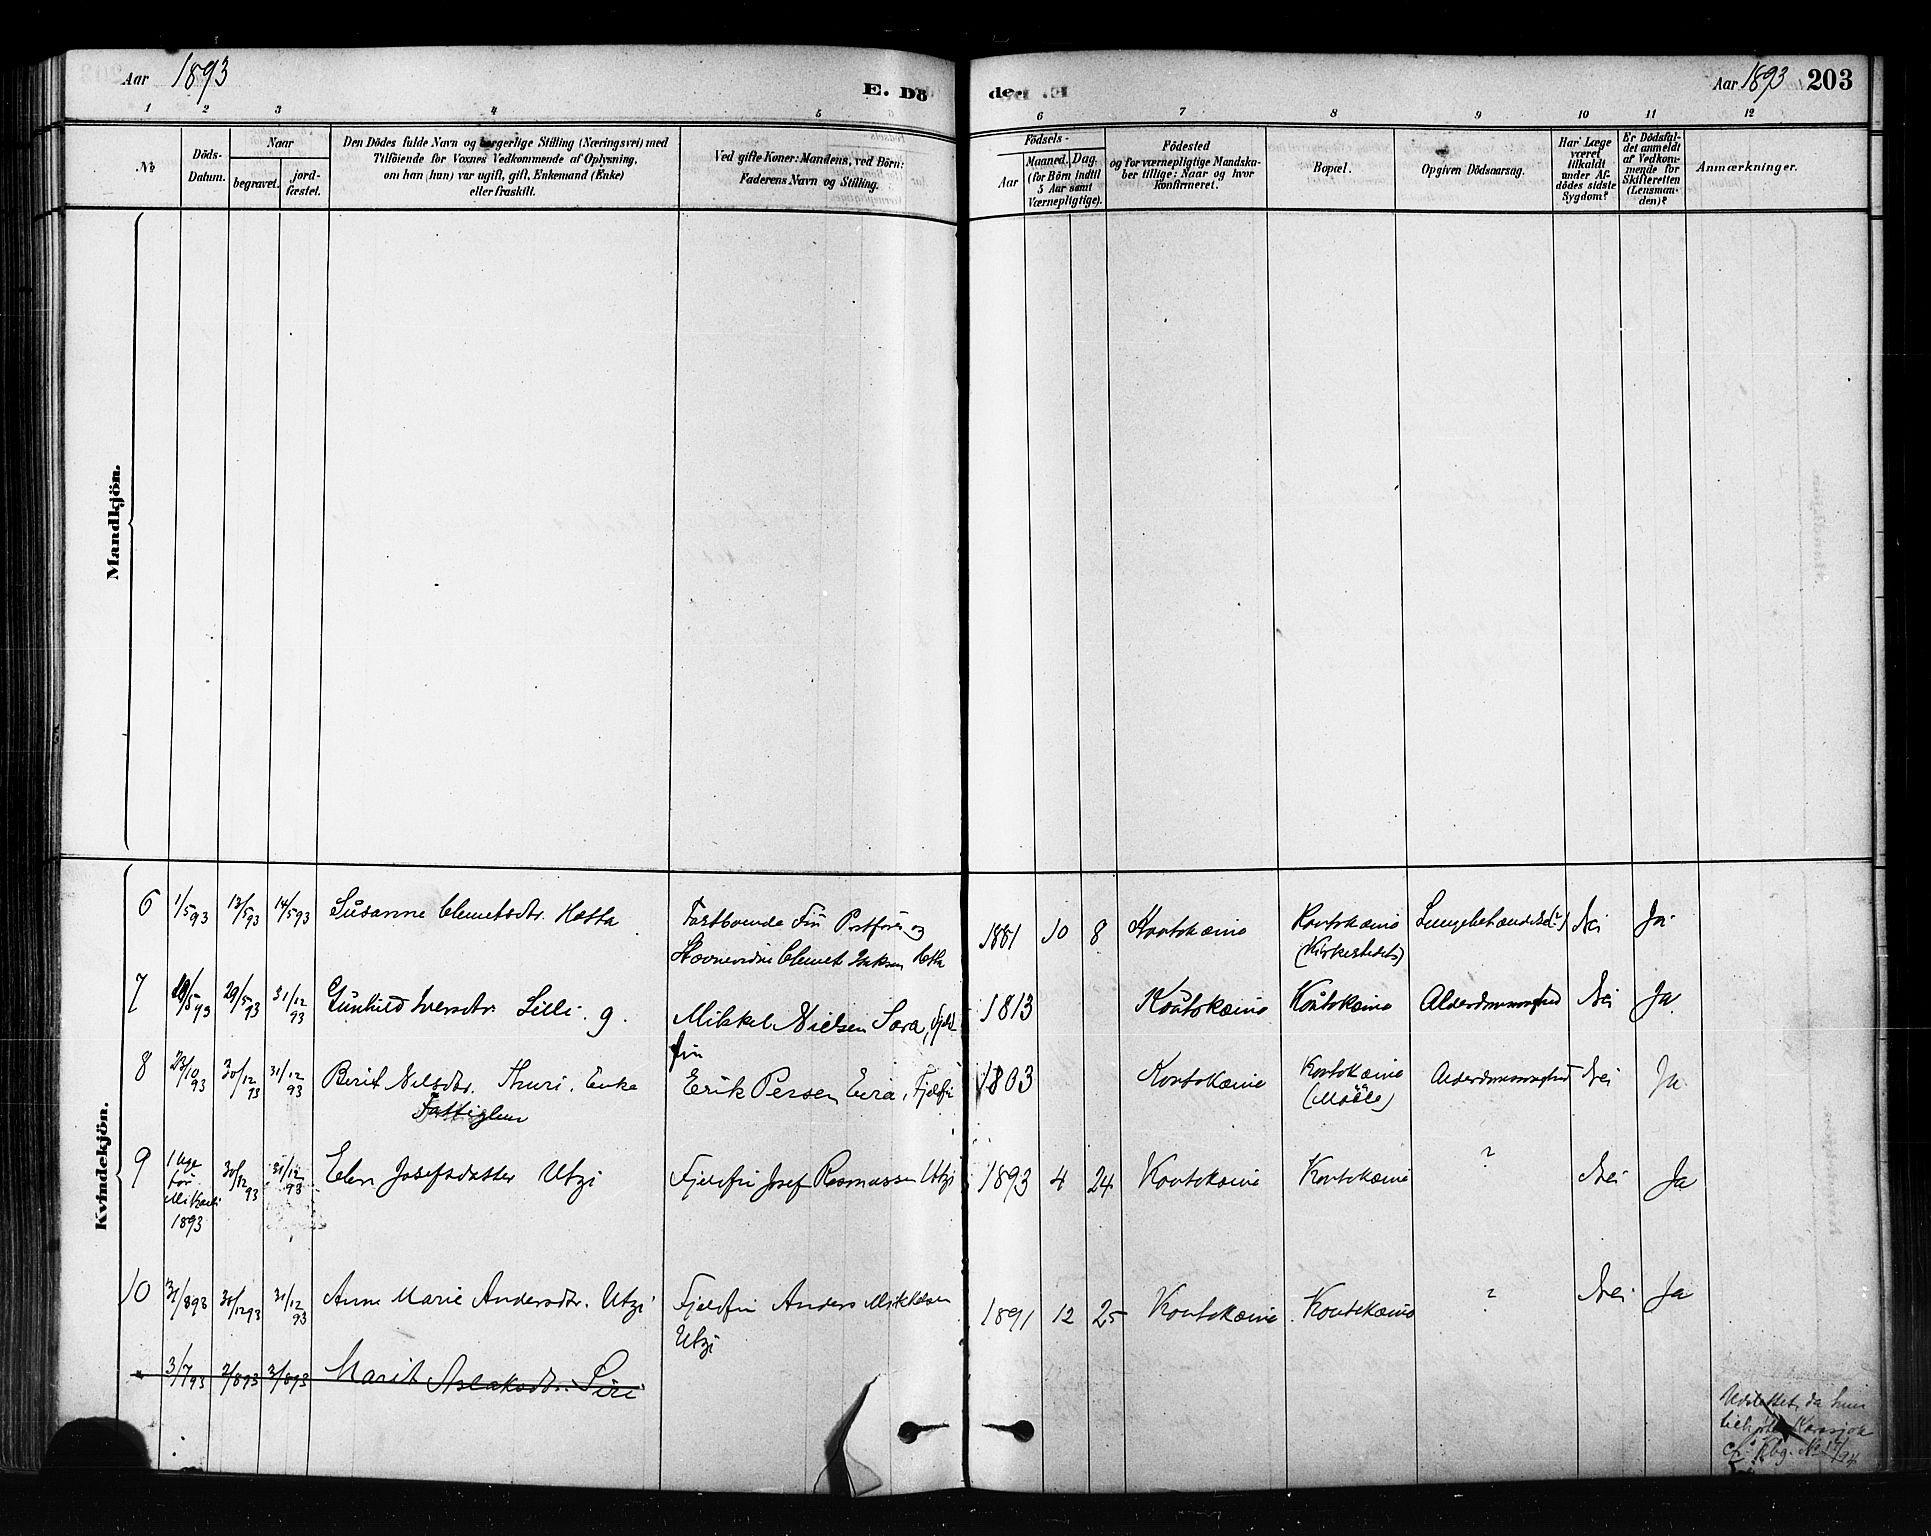 Aar 1893
E. Dö
der. E.
Aar 1893 203
1 2 3 4 5 6 7 8 9 10 11 12
No
Döds-
Datum.
Naar
begravet.
jord-
fæstet.
Den Dödes fulde Navn og borgerlige Stilling (Næringsvei) med
Tilföiende for Voxnes Vedkommende af Oplysning,
om han (hun) var ugift, gift, Enkemand (Enke)
eller fraskilt.
Ved gifte Koner: Mandens, ved Börn:
Faderens Navn og Stilling.
Födsels-
Aar
Maaned. Dag.
(for Börn indtil
5 Aar samt
Værnepligtige).
Födested
og for værnepligtige Mandska-
ber tillige: Naar og hvor
konfirmeret.
Bopæl.
Opgiven Dödsaarsag.
Har Læge
været
tilkaldt
under Af-
dödes sidste
Sygdom?
Er Dödsfal-
det anmeldt
af Vedkom-
mende for
Skifteretten
(Lensman-
den)?
Anmærkninger.
Mandkjön.
Kvindekjön.
6 1/5 93 13/5 93 14/5 93 Susanne Clemetsdtr. Hætta Fastboende Fin Postförer og
Stævnevidne Clemet Isaksen Hætta 1881 10 8 Koutokæino Koutokæino
(Kirkestedet) Nei Ja
7 29/5 93 31/12 93 Gunhild Iversdtr. Silli g. Mikkel Nielsen Sara, Fjeld
fin 1813 Koutokæino Koutokæino Alderdomssvaghed Nei Ja.
8 23/10 93 30/12 93 31/12 93 Berit Nilsdtr. Thuri. Enke
Fattiglem Erik Persen Eira, Fjeldfin 1803 Koutokæino Koutokæino
Alderdomssvaghed Nei Ja
9 1 Uge
för
Mikaeli
1893 30/12 93 31/12 93 Elen Josefsdatter Utzi Fjeldfin Josef Rasmussen Utzi 1893 4 24 Koutokæino Koutokæino ? Nei Ja
10 31/8 93 30/12 93 31/12 93 Anne Marie Andersdtr. Utzi Fjeldfin Anders Mikkelsen
Utzi 1891 12 25 Koutokæino Koutokæino ? Nei Ja
3/7 93 2/8 93 3/8 93 Marit Aslaksdtr. Siri
Udslettet, da hun
Karasjok
cfr. Kbg. No